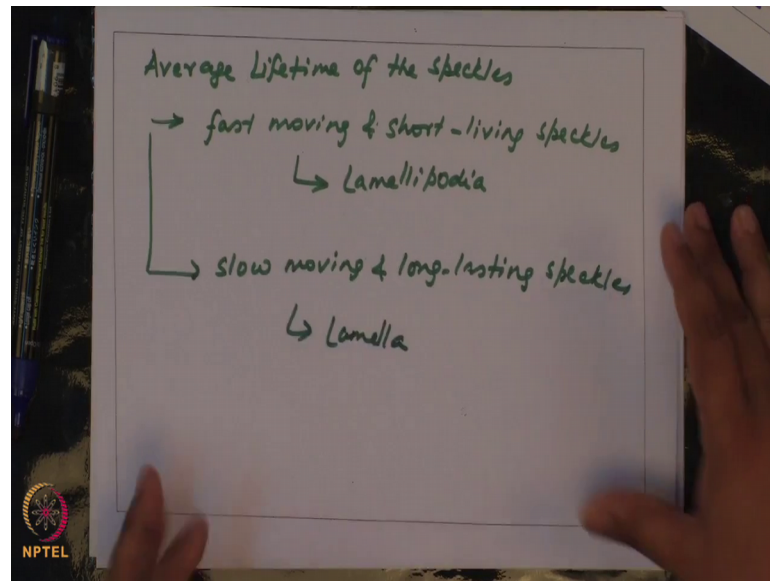 Average Lifetime of the speckles
→ fast moving & short-living speckles
↳ Lamellipodia
↳ slow moving & long-lasting speckles
↳ Lamella
NPTEL